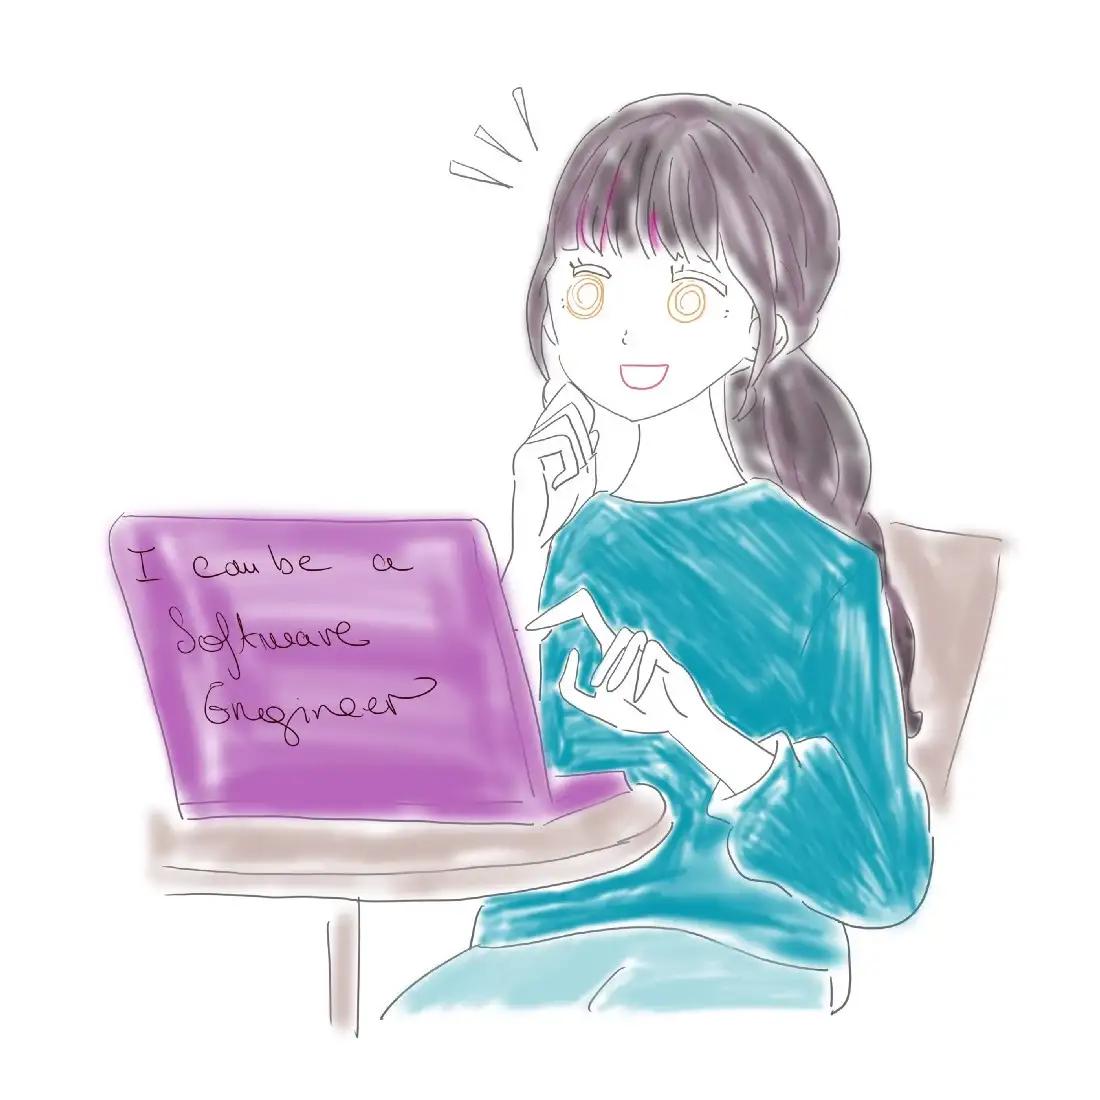 I can be a
Software
Engineer